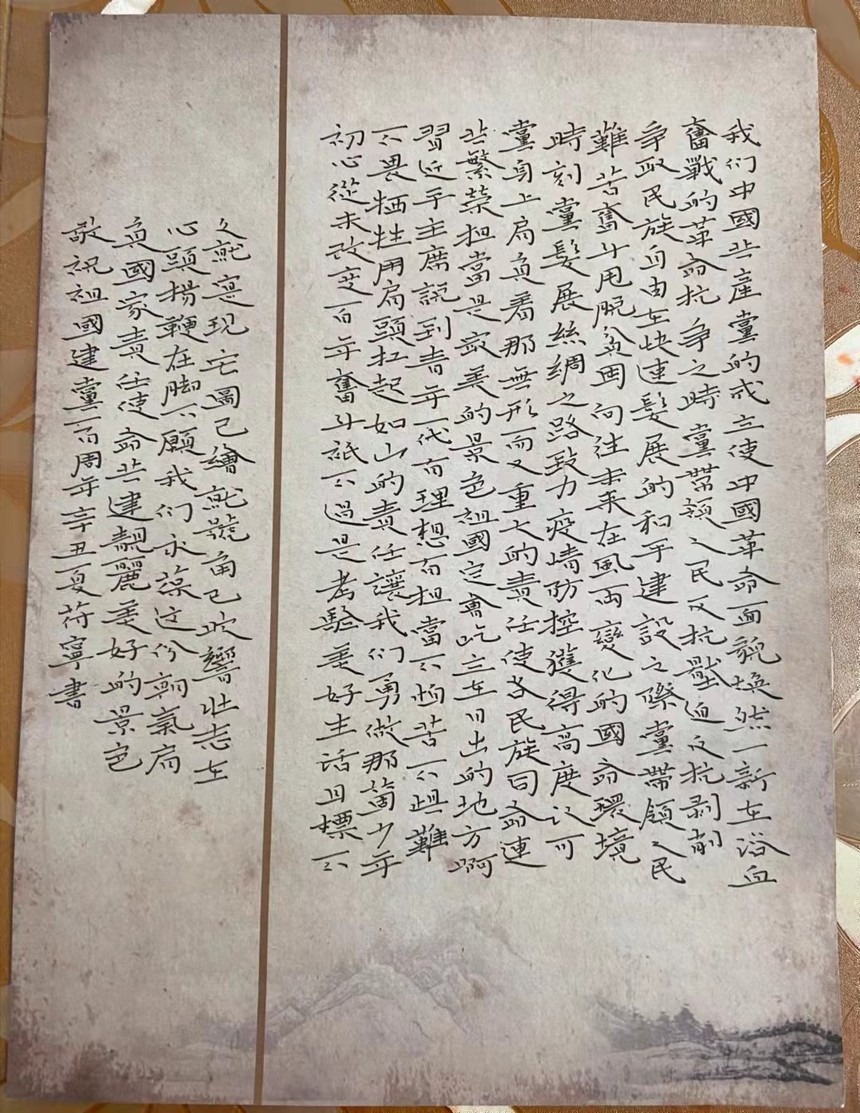 我们中國共產黨的成立使中國革命面貌煥然一新在浴血
奮戰的革命抗爭之時黨帶領人民反抗壓迫反抗剥削
争取民族自由在快速髮展的和平建設之際黨帶領人民
難苦奮斗甩脱貧困向往未来在風雨變化的國命環境
時刻黨髮展絲綢之路致力疫情防控獲得高度认可
黨身上肩負着那無形而又重大的責任使各民族同命連
共繁荣担當是最美的景色祖國定會屹立在日出的地方啊
習近平主席説到青年一代有理想有担當不怕苦不畏難
不畏牺牲用肩頭扛起如山的責任讓我们勇做那箇少年
初心從未改变百年奮斗祇不過是考驗美好生活目標不
久就寔現宏圖已繪就號角已吹響壯志在
心頭揚鞭在脚下願我们永葆这份朝氣肩
負國家責任使命共建靚麗美好的景色
敬祝祖國建黨一百周年辛丑夏荷寧書